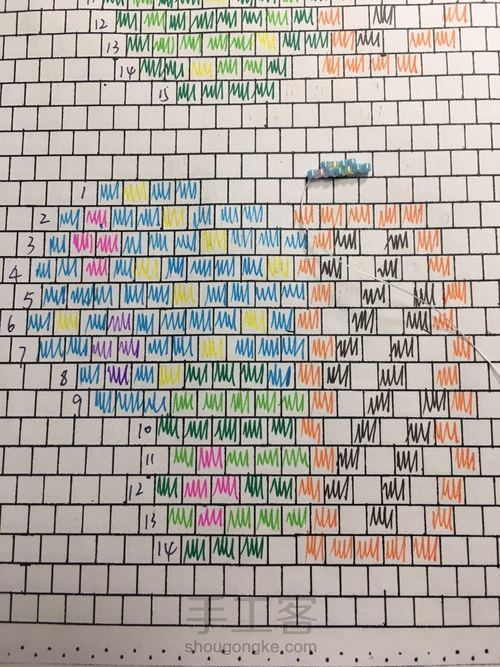 12
13
14
15
1
2
3
4
5
6
7
8
9
10
11
12
13
14
手工客
shougongke.com